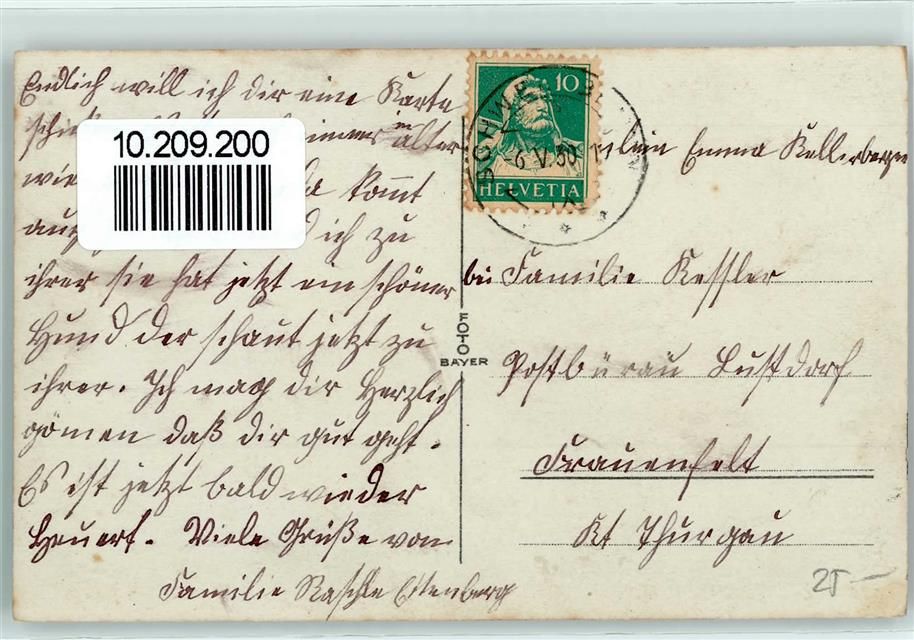 Endlich will ich dir eine Karte
immer im alter
wie kommt
ich zu
ihrer sie hat jetzt ein schöner
Hund der schaut jetzt zu
ihrer. Ich mag dir Herzlich
gömen daß dir gut geht.
Es ist jetzt bald wieder
Heuerf. Viele Grüße von
Familie Raschle
10.209.200
10
HELVETIA
6.V.30
FOTO
BAYER
Emma Kellerberger
bei Familie Kessler
Postbüräu Lustdorf
Frauenfelt
Kt Thurgau
25 -